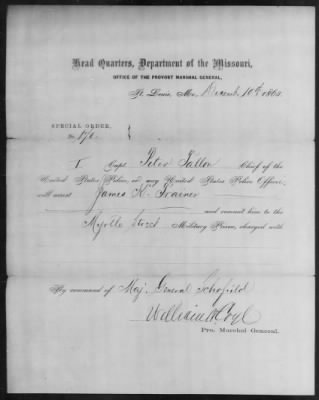 Head Quarters, Department of the Missouri,
OFFICE OF THE PROVOST MARSHAL GENERAL,
St. Louis, Mo., Decemb 10th 1862
SPECIAL ORDER,
No. 170
I. Capt. Peter Tallon Chief of the
United States Police, or any United States Police Officer,
will arrest James K. Trainer
and commit him to the
Myrtle Street Military Prison, charged with
By command of Maj. General Schofield
William
Pro. Marshal General.